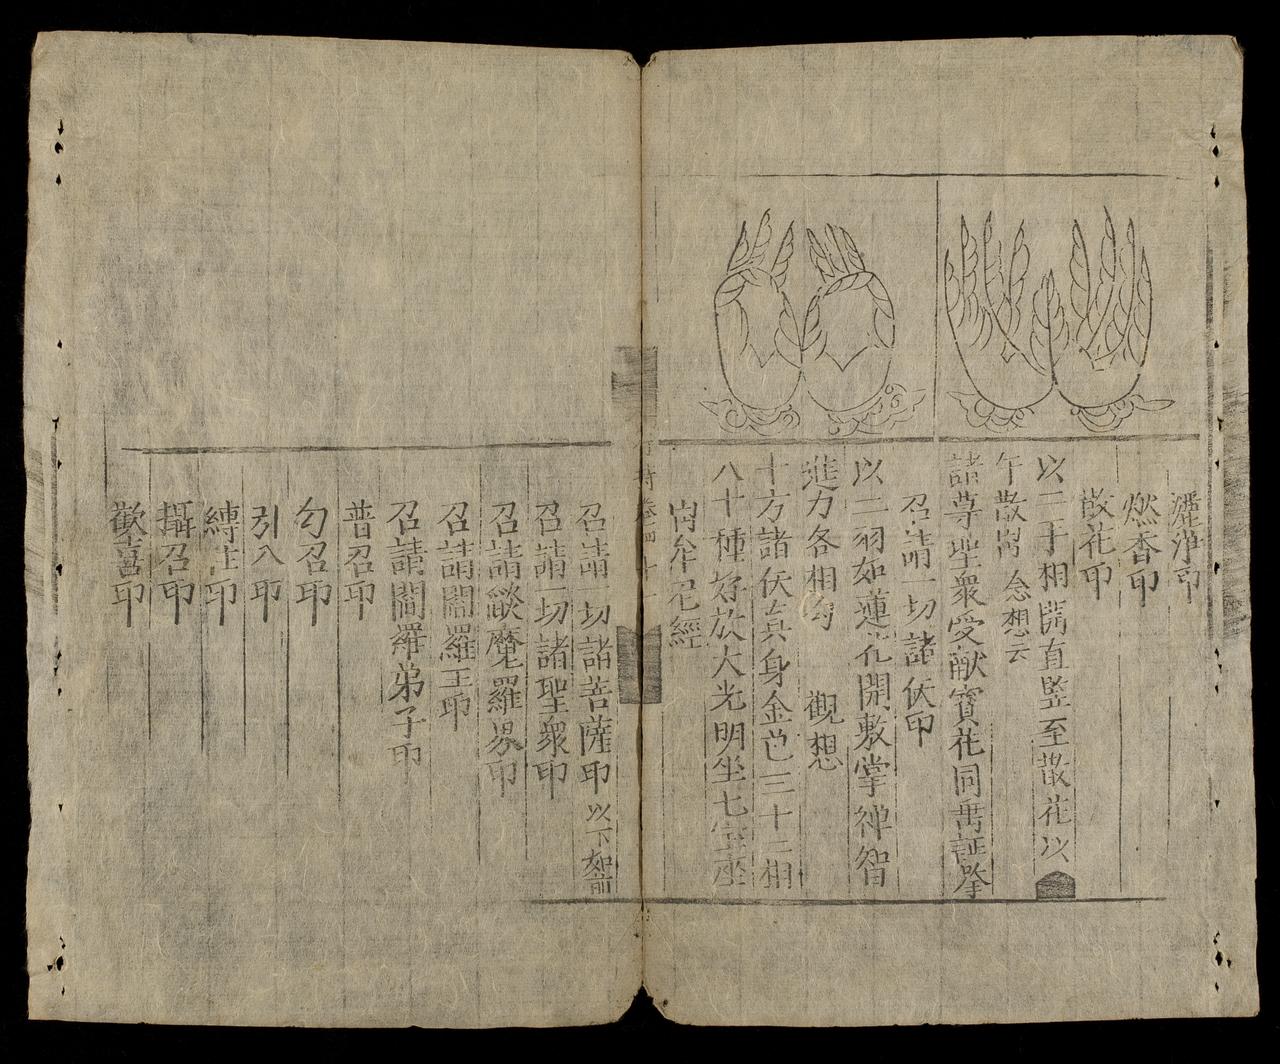 灑淨印
燃香印
散花印
以二手相開直竪至散花以
午散𭕒 念想云
諸尊聖衆受献寳花同𭕒証拏
召請一切諸仸印
以二羽如蓮花開敷掌禅智
進力各相勾 觀想
十方諸仸真身金色三十二相
八十種好放大光明坐七宝座
牟尼經
召請一切諸菩薩印 以下如前
召請一切諸聖衆印
召請燄魔羅界印
召請閻羅王印
召請閻羅弟子印
普召印
勾召印
引入印
縳住印
攝召印
歡喜印